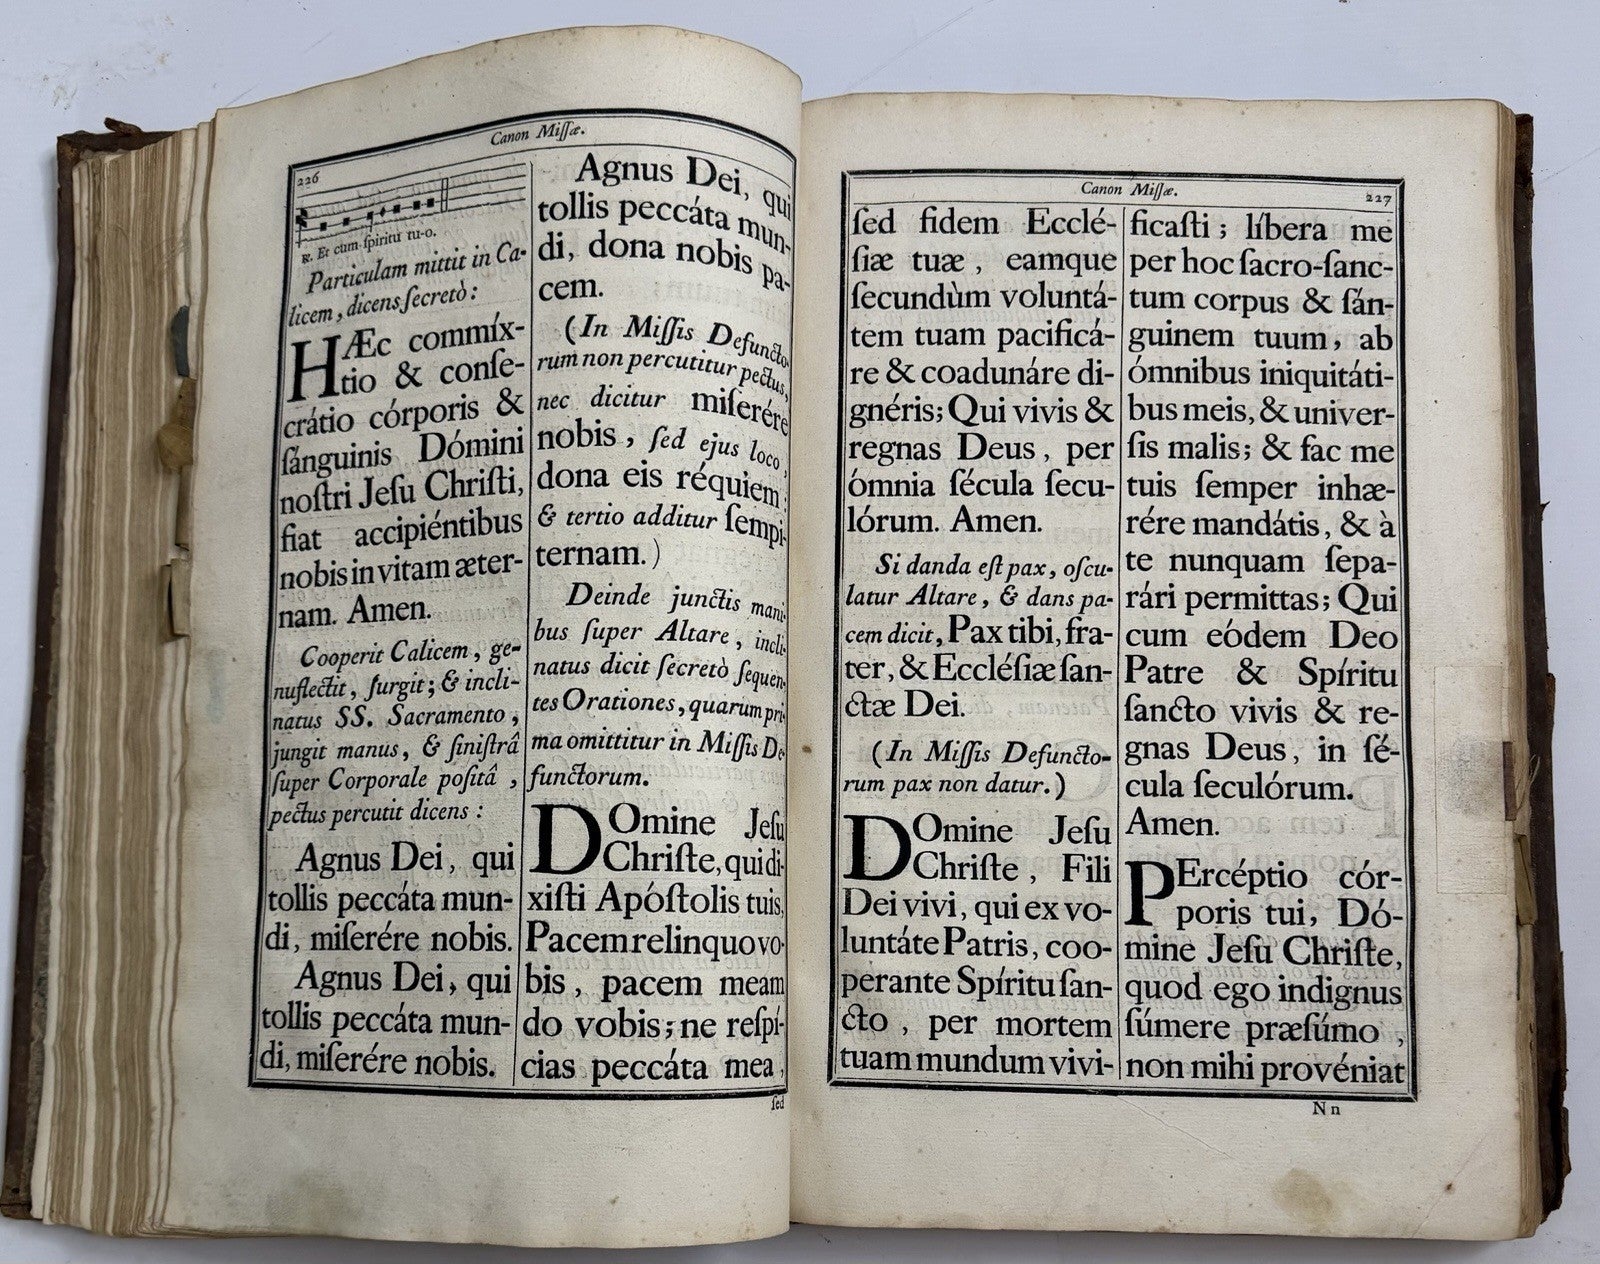 Canon Miſſæ.
226
℟. Et cum ſpiritu tu-o.
Particulam mittit in Ca-
licem, dicens ſecretò:
HÆc commíx-
tio & conſe-
crátio córporis &
ſánguinis Dómini
noſtri Jeſu Chriſti,
fiat accipiéntibus
nobis in vitam æter-
nam. Amen.
Cooperit Calicem, ge-
nuflectit, ſurgit; & incli-
natus SS. Sacramento,
jungit manus, & ſiniſtrâ
ſuper Corporale poſitâ,
pectus percutit dicens:
Agnus Dei, qui
tollis peccáta mun-
di, miſerére nobis.
Agnus Dei, qui
tollis peccáta mun-
di, miſerére nobis.
Agnus Dei, qui
tollis peccáta mun-
di, dona nobis pa-
cem.
(In Miſſis Defuncto-
rum non percutitur pectus,
nec dicitur miſerére
nobis, ſed ejus loco,
dona eis réquiem:
& tertio additur ſempi-
ternam.)
Deinde junctis mani-
bus ſuper Altare, incli-
natus dicit ſecretò ſequen-
tes Orationes, quarum pri-
ma omittitur in Miſſis De-
functorum.
DOmine Jeſu
Chriſte, qui di-
xiſti Apóſtolis tuis,
Pacem relinquo vo-
bis, pacem meam
do vobis; ne reſpí-
cias peccáta mea,
ſed
Canon Miſſæ.
227
ſed fidem Ecclé-
ſiæ tuæ, eamque
ſecundùm voluntá-
tem tuam pacificá-
re & coadunáre di-
gnéris; Qui vivis &
regnas Deus, per
ómnia ſécula ſecu-
lórum. Amen.
Si danda eſt pax, oſcu-
latur Altare, & dans pa-
cem dicit, Pax tibi, fra-
ter, & Eccléſiæ ſan-
ctæ Dei.
(In Miſſis Defuncto-
rum pax non datur.)
DOmine Jeſu
Chriſte, Fili
Dei vivi, qui ex vo-
luntáte Patris, coo-
perante Spíritu ſan-
cto, per mortem
tuam mundum vivi-
ficaſti; líbera me
per hoc ſacro-ſanc-
tum corpus & ſán-
guinem tuum, ab
ómnibus iniquitáti-
bus meis, & univer-
ſis malis; & fac me
tuis ſemper inhæ-
rére mandátis, & à
te nunquam ſepa-
rári permittas; Qui
cum eódem Deo
Patre & Spíritu
ſancto vivis & re-
gnas Deus, in ſé-
cula ſeculórum.
Amen.
PErcéptio cór-
poris tui, Dó-
mine Jeſu Chriſte,
quod ego indignus
ſúmere præſúmo,
non mihi provéniat
Nn